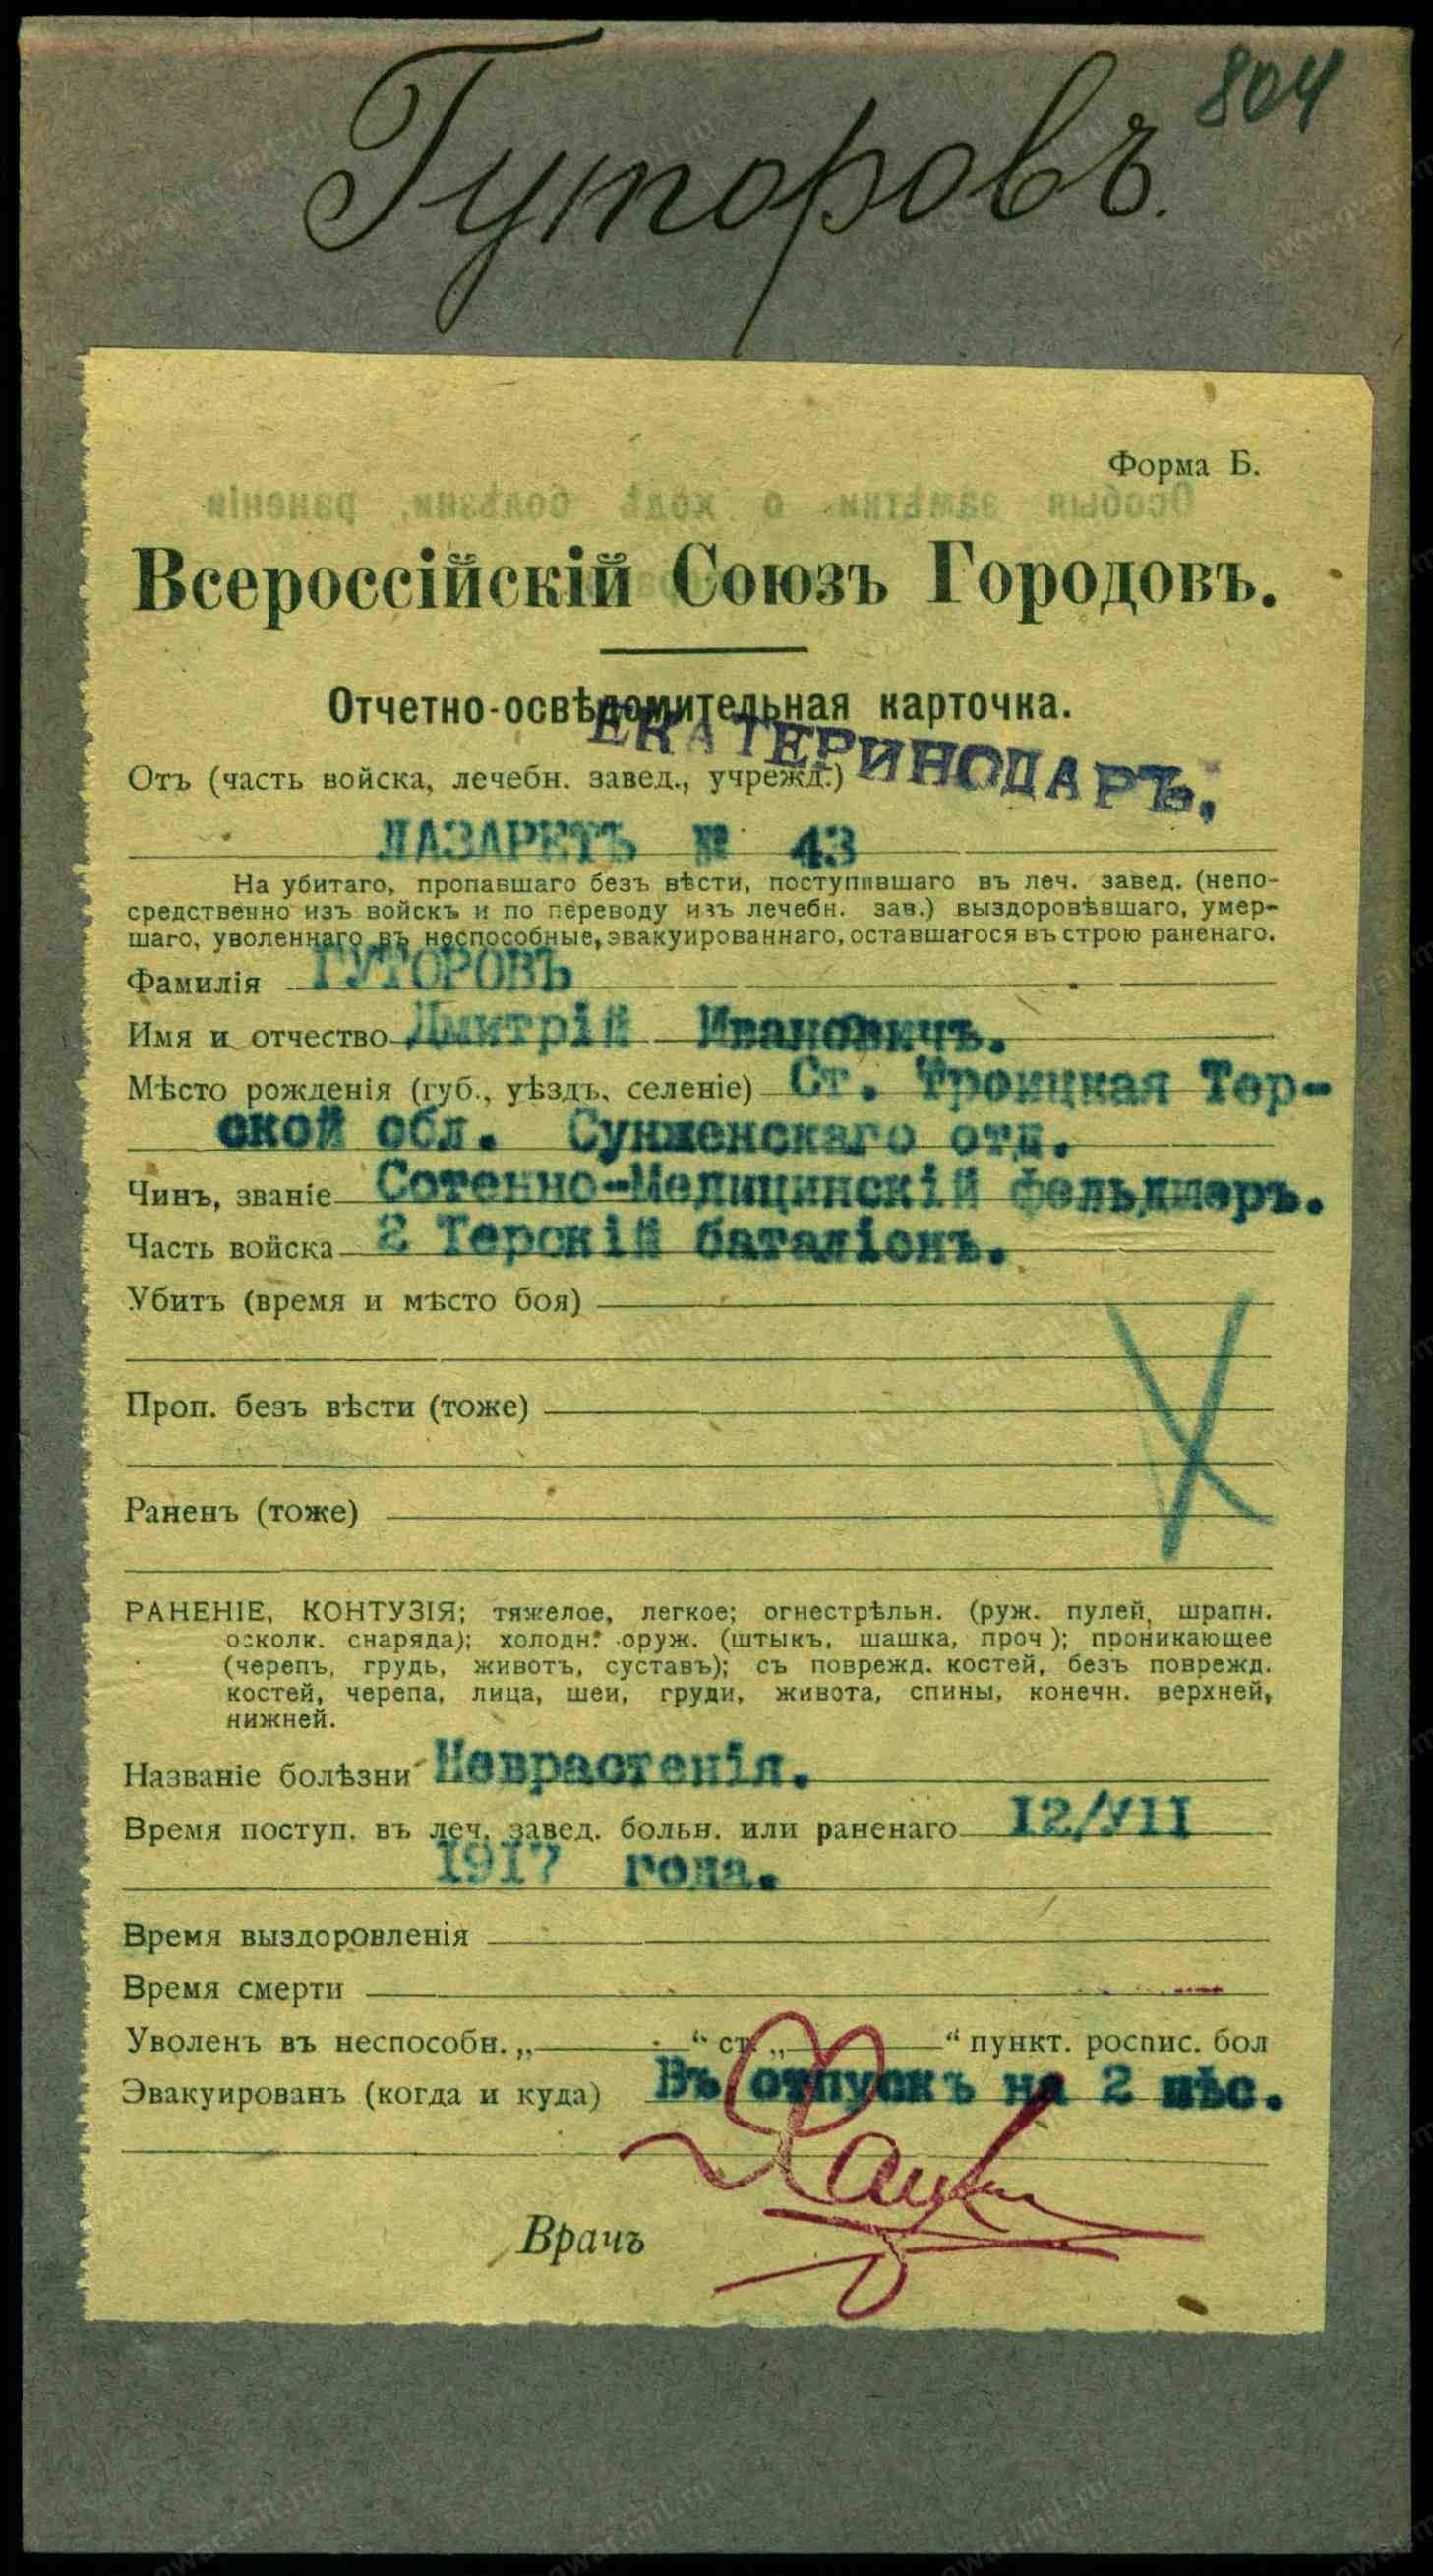 804
Гуторовъ.
Форма Б.
Особыя замѣтки о ходѣ болѣзни, раненія
Всероссійскій Союзъ Городовъ.
Отчетно-освѣдомительная карточка.
ЕКАТЕРИНОДАРЪ.
Отъ (часть войска, лечебн. завед., учрежд.)
ЛАЗАРЕТЪ № 43
На убитаго, пропавшаго безъ вѣсти, поступившаго въ леч. завед. (непо-
средственно изъ войскъ и по переводу изъ лечебн. зав.) выздоровѣвшаго, умер-
шаго, уволеннаго въ неспособные, эвакуированнаго, оставшагося въ строю раненаго.
Фамилія ГУТОРОВЪ
Имя и отчество Дмитрій Ивановичъ.
Мѣсто рожденія (губ., уѣздъ, селеніе) Ст. Троицкая Тер-
ской обл. Сунженскаго отд.
Чинъ, званіе Сотенно-Медицинскій фельдшеръ.
Часть войска 2 Терскій баталіонъ.
Убитъ (время и мѣсто боя)
Проп. безъ вѣсти (тоже)
Раненъ (тоже)
РАНЕНІЕ, КОНТУЗІЯ; тяжелое, легкое; огнестрѣльн. (руж. пулей, шрапн.
осколк. снаряда); холодн. оруж. (штыкъ, шашка, проч.); проникающее
(черепъ, грудь, животъ, суставъ); съ поврежд. костей, безъ поврежд.
костей, черепа, лица, шеи, груди, живота, спины, конечн. верхней,
нижней.
Названіе болѣзни Неврастенія.
Время поступ. въ леч. завед. больн. или раненаго 12/VII
1917 года.
Время выздоровленія
Время смерти
Уволенъ въ неспособн. „ “ ст. „ “ пункт. роспис. бол
Эвакуированъ (когда и куда) Въ отпускъ на 2 мѣс.
Врачъ